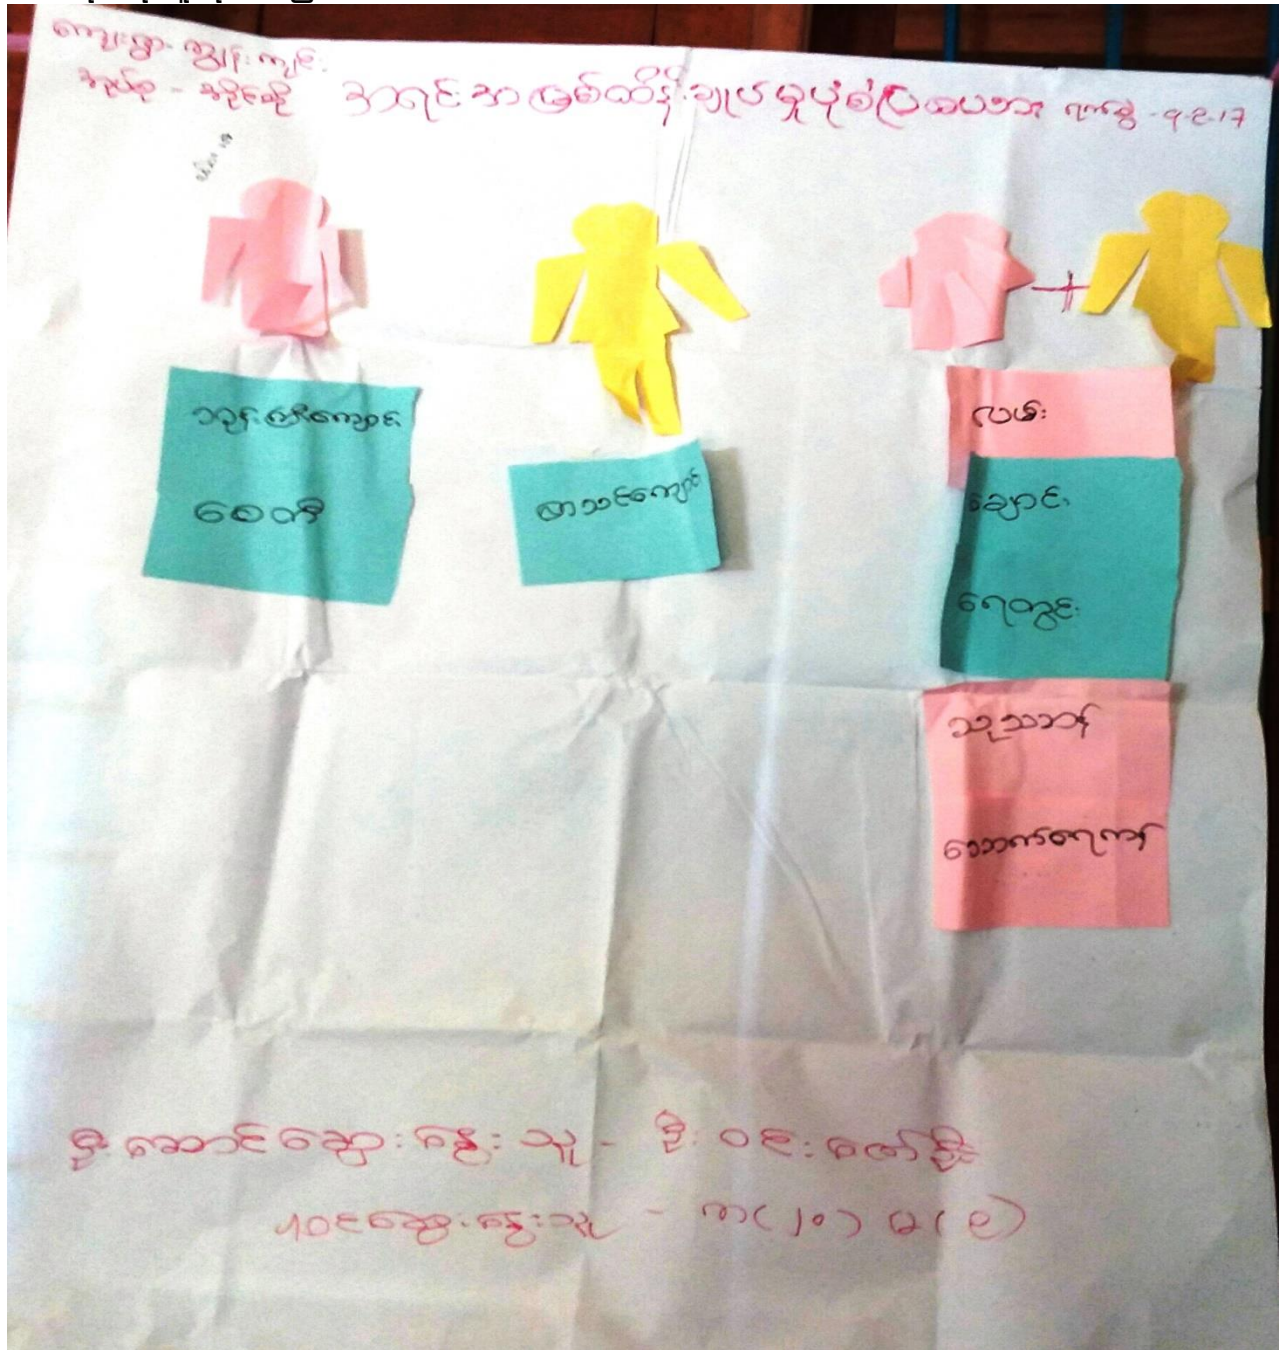 ကျေးရွာ - ကျွန်းကျင်း
အုပ်စု -
အရင်းအမြစ်ထိန်းချုပ်မှုပုံစံပြဇယား ရက်စွဲ - ၅-၉-၁၇
ဘုန်းကြီးကျောင်း
စေတီ
စာသင်ကျောင်း
လမ်း
ချောင်း
ရေတွင်း
သုသာန်
သောက်ရေကန်
ဦးဆောင်ဆွေးနွေးသူ - ဦးဝင်းဇော်ဦး
ပါဝင်ဆွေးနွေးသူ - ကျာ (၂၀) မ (၉)